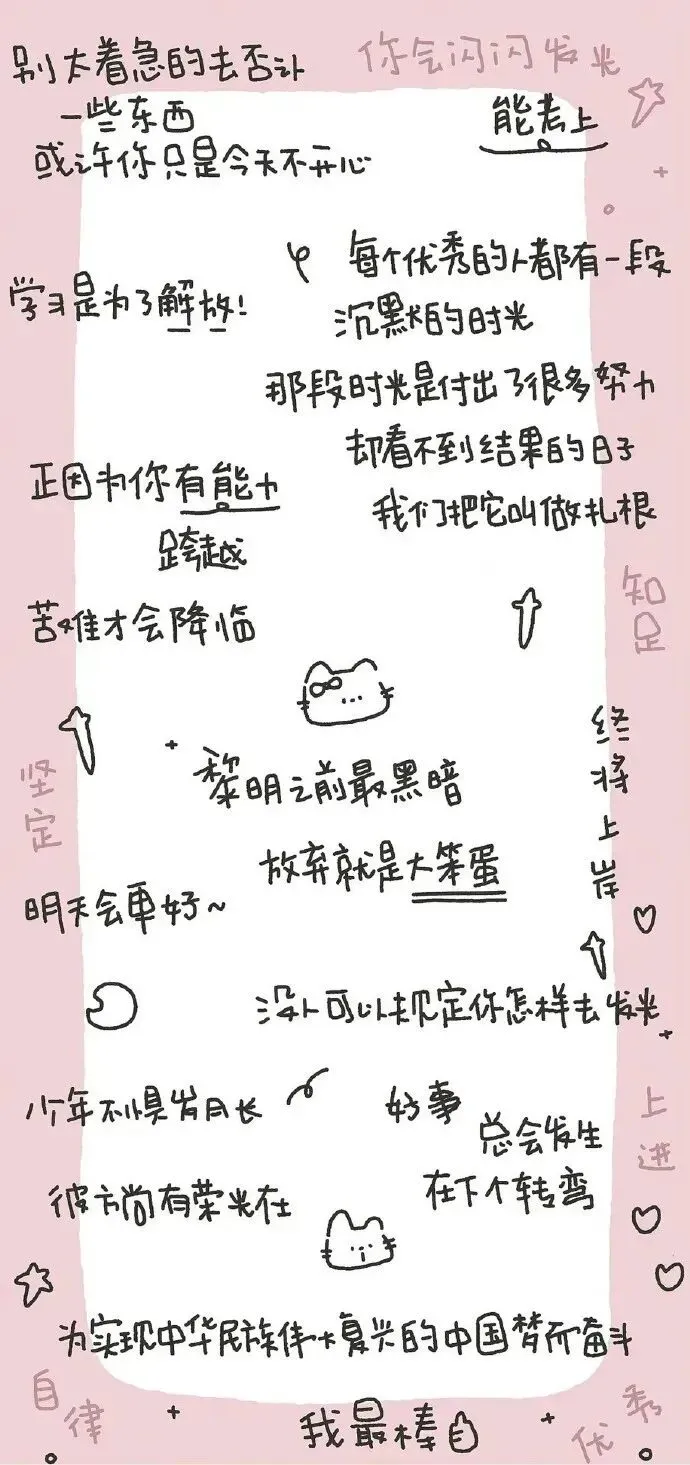 别太着急的去否认
一些东西
或许你只是今天不开心
你会闪闪发光
能考上
学习是为了解放!
每个优秀的人都有一段
沉默的时光
那段时光是付出了很多努力
却看不到结果的日子
我们把它叫做扎根
正因为你有能力
跨越
苦难才会降临
知足
坚定
终将上岸
黎明之前最黑暗
放弃就是大笨蛋
明天会更好~
没人可以规定你怎样去发光
少年不惧岁月长
彼方尚有荣光在
好事
总会发生
在下个转弯
上进
为实现中华民族伟大复兴的中国梦而奋斗
自律
我最棒
优秀